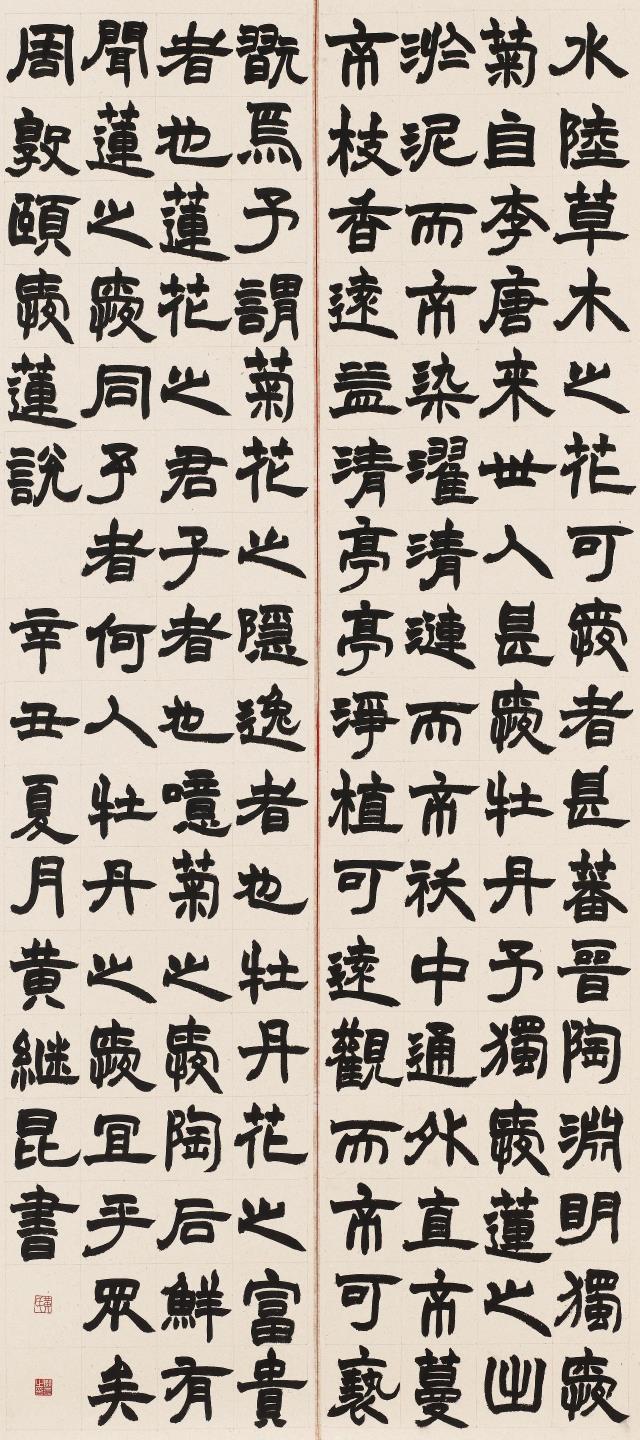 水陸草木之花可愛者甚蕃晉陶淵明獨愛
菊自李唐来世人甚愛牡丹予獨愛蓮之出
淤泥而不染濯清漣而不祅中通外直不蔓
不枝香遠益清亭亭淨植可遠觀而不可褻
翫焉予謂菊花之隱逸者也牡丹花之富貴
者也蓮花之君子者也噫菊之愛陶后鮮有
聞蓮之愛同予者何人牡丹之愛宜乎眾矣
周敦頤愛蓮說 辛丑夏月黄継昆書